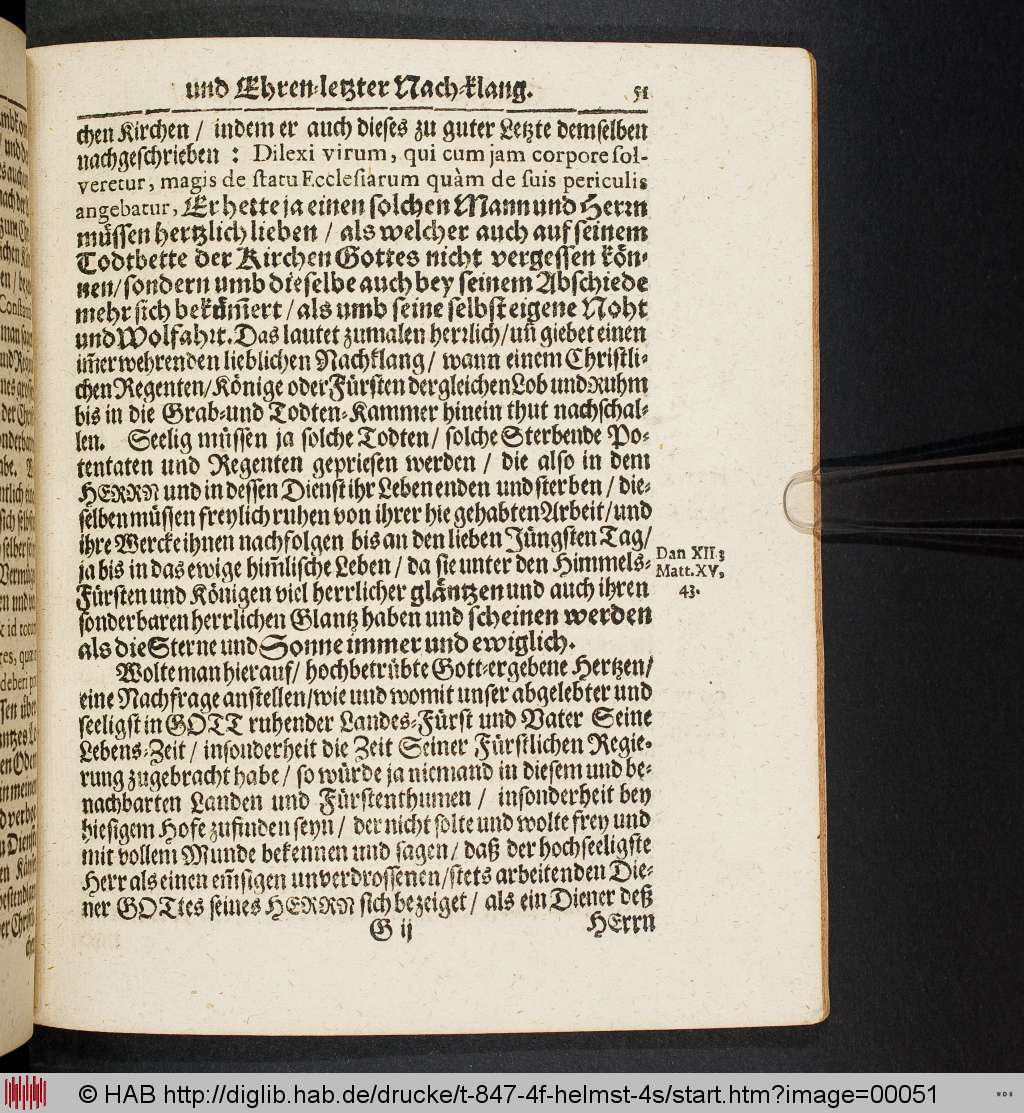 und Ehren-letzter Nach-klang. 51
chen Kirchen / indem er auch dieses zu guter Letzte demselben
nachgeschrieben : Dilexi virum, qui cum jam corpore sol-
veretur, magis de statu Ecclesiarum quàm de suis periculis
angebatur, Er hette ja einen solchen Mann und Herrn
müssen hertzlich lieben / als welcher auch auf seinem
Todtbette der Kirchen Gottes nicht vergessen kön-
nen/ sondern umb dieselbe auch bey seinem Abschiede
mehr sich bekūm̄ert / als umb seine selbst eigene Noht
und Wolfahrt. Das lautet zumalen herrlich/ uñ giebet einen
im̄erwehrenden lieblichen Nachklang / wann einem Christli-
chen Regenten/ Könige oder Fürsten dergleichen Lob und Ruhm
bis in die Grab- und Todten-Kammer hinein thut nachschal-
len. Seelig müssen ja solche Todten/ solche Sterbende Po-
tentaten und Regenten gepriesen werden / die also in dem
HERRN und in dessen Dienst ihr Leben enden und sterben / die-
selben müssen freylich ruhen von ihrer hie gehabten Arbeit/ und
ihre Wercke ihnen nachfolgen bis an den lieben Jüngsten Tag/
ja bis in das ewige him̄lische Leben / da sie unter den Himmels-
Fürsten und Königen viel herrlicher gläntzen und auch ihren
sonderbaren herrlichen Glantz haben und scheinen werden
als die Sterne und Sonne immer und ewiglich.
Dan XII. 3
Matt. XV,
43.
Wolte man hierauf/ hochbetrübte Gott-ergebene Hertzen/
eine Nachfrage anstellen/ wie und womit unser abgelebter und
seeligst in GOTT ruhender Landes-Fürst und Vater Seine
Lebens-Zeit / insonderheit die Zeit Seiner Fürstlichen Regie-
rung zugebracht habe / so würde ja niemand in diesem und be-
nachbarten Landen und Fürstenthumen / insonderheit bey
hiesigem Hofe zufinden seyn / der nicht solte und wolte frey und
mit vollem Munde bekennen und sagen / daß der hochseeligste
Herr als einen em̄sigen unverdrossenen/ stets arbeitenden Die-
ner GOTtes seines HERRN sich bezeiget / als ein Diener deß
G ij HErrn
© HAB http://diglib.hab.de/drucke/t-847-4f-helmst-4s/start.htm?image=00051